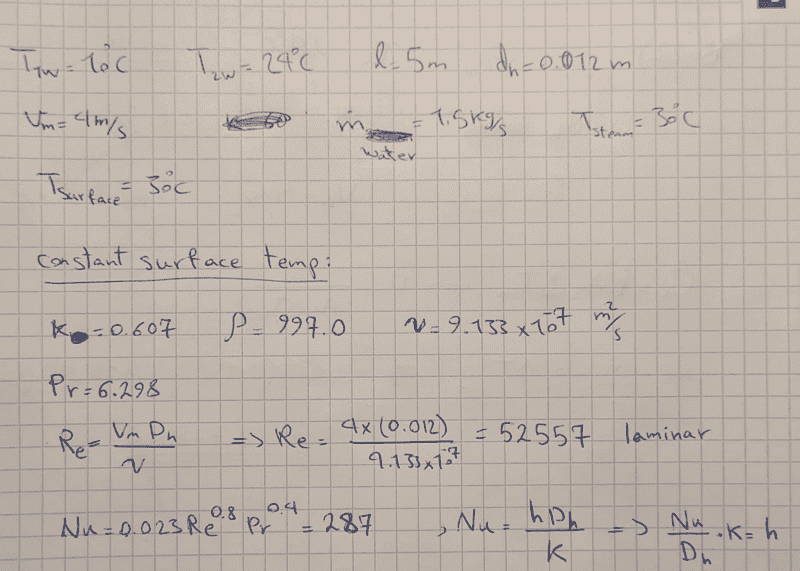 T₁w = 10°C T₂w = 24°C l = 5m dₕ = 0.012 m
Vm = 4 m/s ṁ water = 1.5 kg/s T steam = 30°C
T surface = 30°C
constant surface temp:
K = 0.607 ρ = 997.0 ν = 9.133 × 10⁻⁷ m²/s
Pr = 6.298
Re = Vm Dh / ν => Re = 4 × (0.012) / 9.133 × 10⁻⁷ = 52557 laminar
Nu = 0.023 Re^0.8 Pr^0.4 = 287 , Nu = h Dh / K => Nu / Dh · K = h